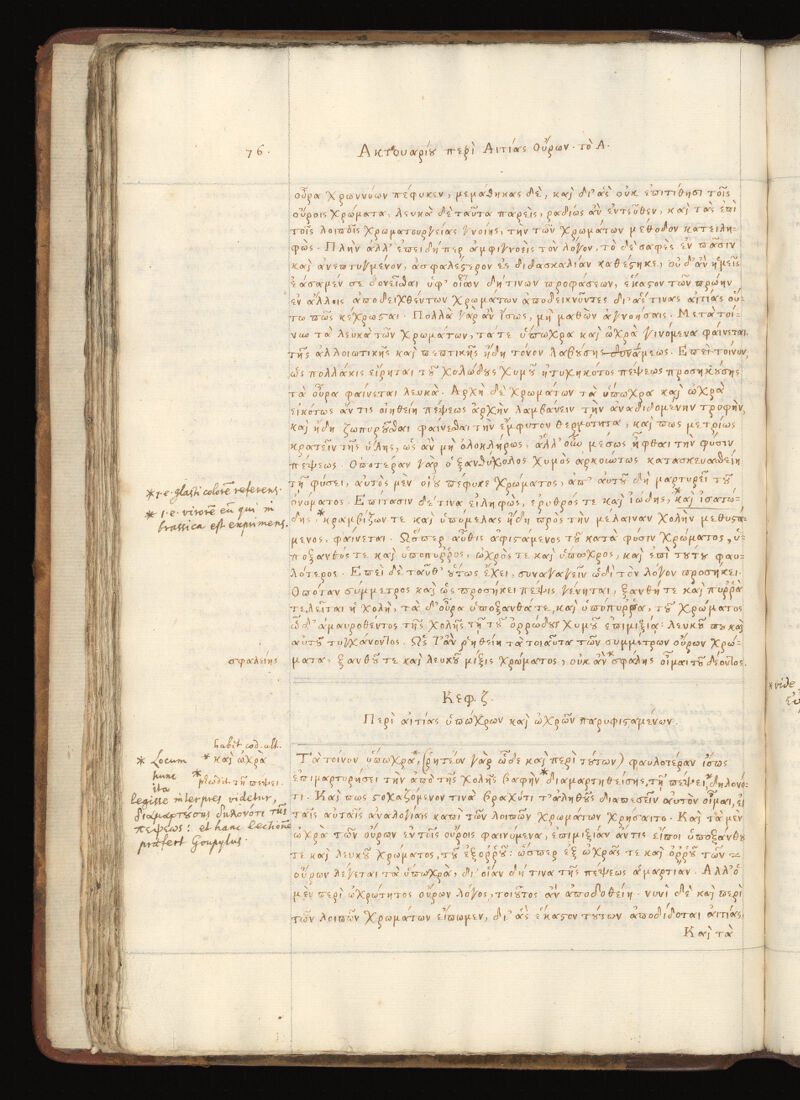 76.
Ἀκτουαρίου περὶ Αἰτίας Οὔρων. τὸ Α.
οὖρα χρωννύων πέφυκεν, μεμάθηκας δὲ, καὶ δι' ἃς οὐκ ἐπιτίθησι τοῖς
οὔροις χρώματα, λευκὰ δὲ ταῦτα παρεὶς, ῥαδίως ἂν ἐντεῦθεν, καὶ τὰς ἐπὶ
τοῖς λοιποῖς χρωματουργείας γνοίης, τὴν τῶν χρωμάτων μέθοδον κατειλη-
φώς. Πλὴν ἀλλ' ἐπειδήπερ ἀμφιγνοεῖς τὸν λόγον, τὸ δὲ σαφὲς ἐν πᾶσιν
καὶ ἀνεπτυγμένον, ἀσφαλέστερον ἐς διδασκαλίαν καθέστηκε, οὐδ' ἂν ἡμεῖς
ἐάσαμέν σε δονεῖσθαι ὑφ' οἵων δήτινων προφάσεων, ἕκαστον τῶν πρώην
ἐν ἄλλοις ἀποδειχθέντων χρωμάτων ἀποδεικνύντες δι' ἅστινας αἰτίας οὕ-
τω πως κέχρωσται. Πολλὰ γὰρ ἂν ἴσως, μὴ μαθὼν ἀγνοήσαις. Μετὰ τοί-
νυν τὰ λευκὰ τῶν χρωμάτων, τά τε ὑπωχρα καὶ ὠχρὰ γινόμενα φαίνεται,
τῆς ἀλλοιωτικῆς καὶ πεπτικῆς ἤδη τόνον λαβούσης δυνάμεως. Ἐπεὶ τοίνυν,
ὡς πολλάκις εἴρηται τοῦ χολώδους χυμοῦ ἠτυχηκότος πέψεως προσηκούσης
τὰ οὖρα φαίνεται λευκά. Ἀρχὴ δὲ χρωμάτων τὰ ὑπωχρα καὶ ὠχρὰ
εἰκότως ἄν τις οἰηθείη πέψεως ἀρχὴν λαμβάνειν τὴν ἀναδιδομένην τροφὴν,
καὶ ἤδη ζωπυροῦσθαι φαίνεσθαι τὴν ἔμφυτον θερμότητα, καί πως μετρίως
κρατεῖν τῆς ὕλης, ὡς ἂν μὴ ὁλοκλήρως, ἀλλ' οὕτω μέσως ἧφθαι τὴν φύσιν
πέψεως. Ὁποτέραν γὰρ ὁ ξανθόχολος χυμὸς ἀρκούντως κατασκευασθείη
τῇ φύσει, αὐτὸς μὲν οἵου πέφυκε χρώματος, ἀπ' αὐτοῦ δὴ μαρτυρεῖ τοῦ
ὀνόματος. Ἐπίτασιν δέ τινα εἰληφὼς, ἐρυθρός τε καὶ ἰώδης, *καὶ ἰσατώ-
δης, *κραμβίζων τε καὶ ὑπομέλας ἤδη πρὸς τὴν μέλαιναν χολὴν μεθιστα-
μενος, φαίνεται. Ὥσπερ αὖθις ἀφιστάμενος τοῦ κατὰ φύσιν χρώματος, ὑ-
ποξανθός τε καὶ ὑπόπυρρος, ὠχρός τε καὶ ὕπωχρος, καὶ ἐπὶ τούτου φαυ-
λότερος. Ἐπεὶ δὲ ταῦθ' οὕτως ἔχει, συναγαγεῖν ὡδὶ τὸν λόγον προσήκει.
Ὁπόταν σύμμετρος καὶ ὡς προσήκει πέψις γένηται, ξανθή τε καὶ πυῤῥὰ
τελεῖται ἡ χολὴ, τὰ δ' οὖρα ὑπόξανθά τε, καὶ ὑπόπυῤῥα, τοῦ χρώματος
ὧδ' ἀμαυροθέντος τῆς χολῆς τῇ τοῦ ὀῤῥώδους χυμοῦ ἐπιμιξίᾳ· λευκοῦ που καὶ
αὐτοῦ τυγχάνοντος. Ὡς γ' ἂν ῥηθείη τὰ τοιαῦτα τῶν συμμέτρων οὔρων χρώ-
ματα, ξανθοῦ τε καὶ λευκοῦ μίξις χρώματος, οὐκ ἂν *σφάλης οἶμαι τοῦ δέοντος.
*i.e. glasti colorē referens.
*i.e. virorē eū qui in
brassica est exprimens.
σφαλείης
Κεφ. ζ.
Περὶ αἰτίας ὑπώχρων καὶ ὠχρῶν παρυφισταμένων.
Τὰ τοίνυν ὕπωχρα*, (ῥητέον γὰρ ὧδε καὶ περὶ τούτων) φαυλοτέραν ἴσως
ἐπιμαρτυρήσει τὴν ἀπὸ τῆς χολῆς βαφὴν *διαμαρτηθείσης, τῇ πέψει *δηλονό-
τι. Καί πως στοχαζόμενόν τινα βραχύτι τἀληθοῦς διαπεσεῖν αὐτὸν οἶμαι, εἰ
ταῖς αὐταῖς ἀναλογίαις κἀπὶ τῶν λοιπῶν χρωμάτων χρήσαιτο. Καὶ τὰ μὲν
ὠχρὰ τῶν οὔρων ἐν τοῖς οὔροις φαινόμενα, ἐπιμιξίαν ἄν τις εἴποι ὑποξάνθου
τε καὶ λευκοῦ χρώματος, τοῦ ἐξ ὀῤῥοῦ: ὥσπερ ἐξ ὠχρᾶς τε καὶ ὀῤῥοῦ τῶν
οὔρων λέγεται τὰ ὕπωχρα, δι' οἵαν δή τινα τῆς πέψεως ἁμαρτίαν. Ἀλλ' ὁ
μὲν περὶ ὠχρότητος οὔρων λόγος, τοιοῦτος ἂν ἀποδοθείη. νυνὶ δὲ καὶ περὶ
τῶν λοιπῶν χρωμάτων εἴπωμεν, δι' ἃς ἕκαστον τούτων ἀποδίδοται αἰτίας.
Καὶ τὰ
habet cod. alt.
*καὶ ὠχρὰ
* Locum
hunc
ita
legisse interpres videtur,
διαμαρτούσης δηλονότι τῆς
πέψεως: et hanc lectionē
præfert Goupylus.
vide